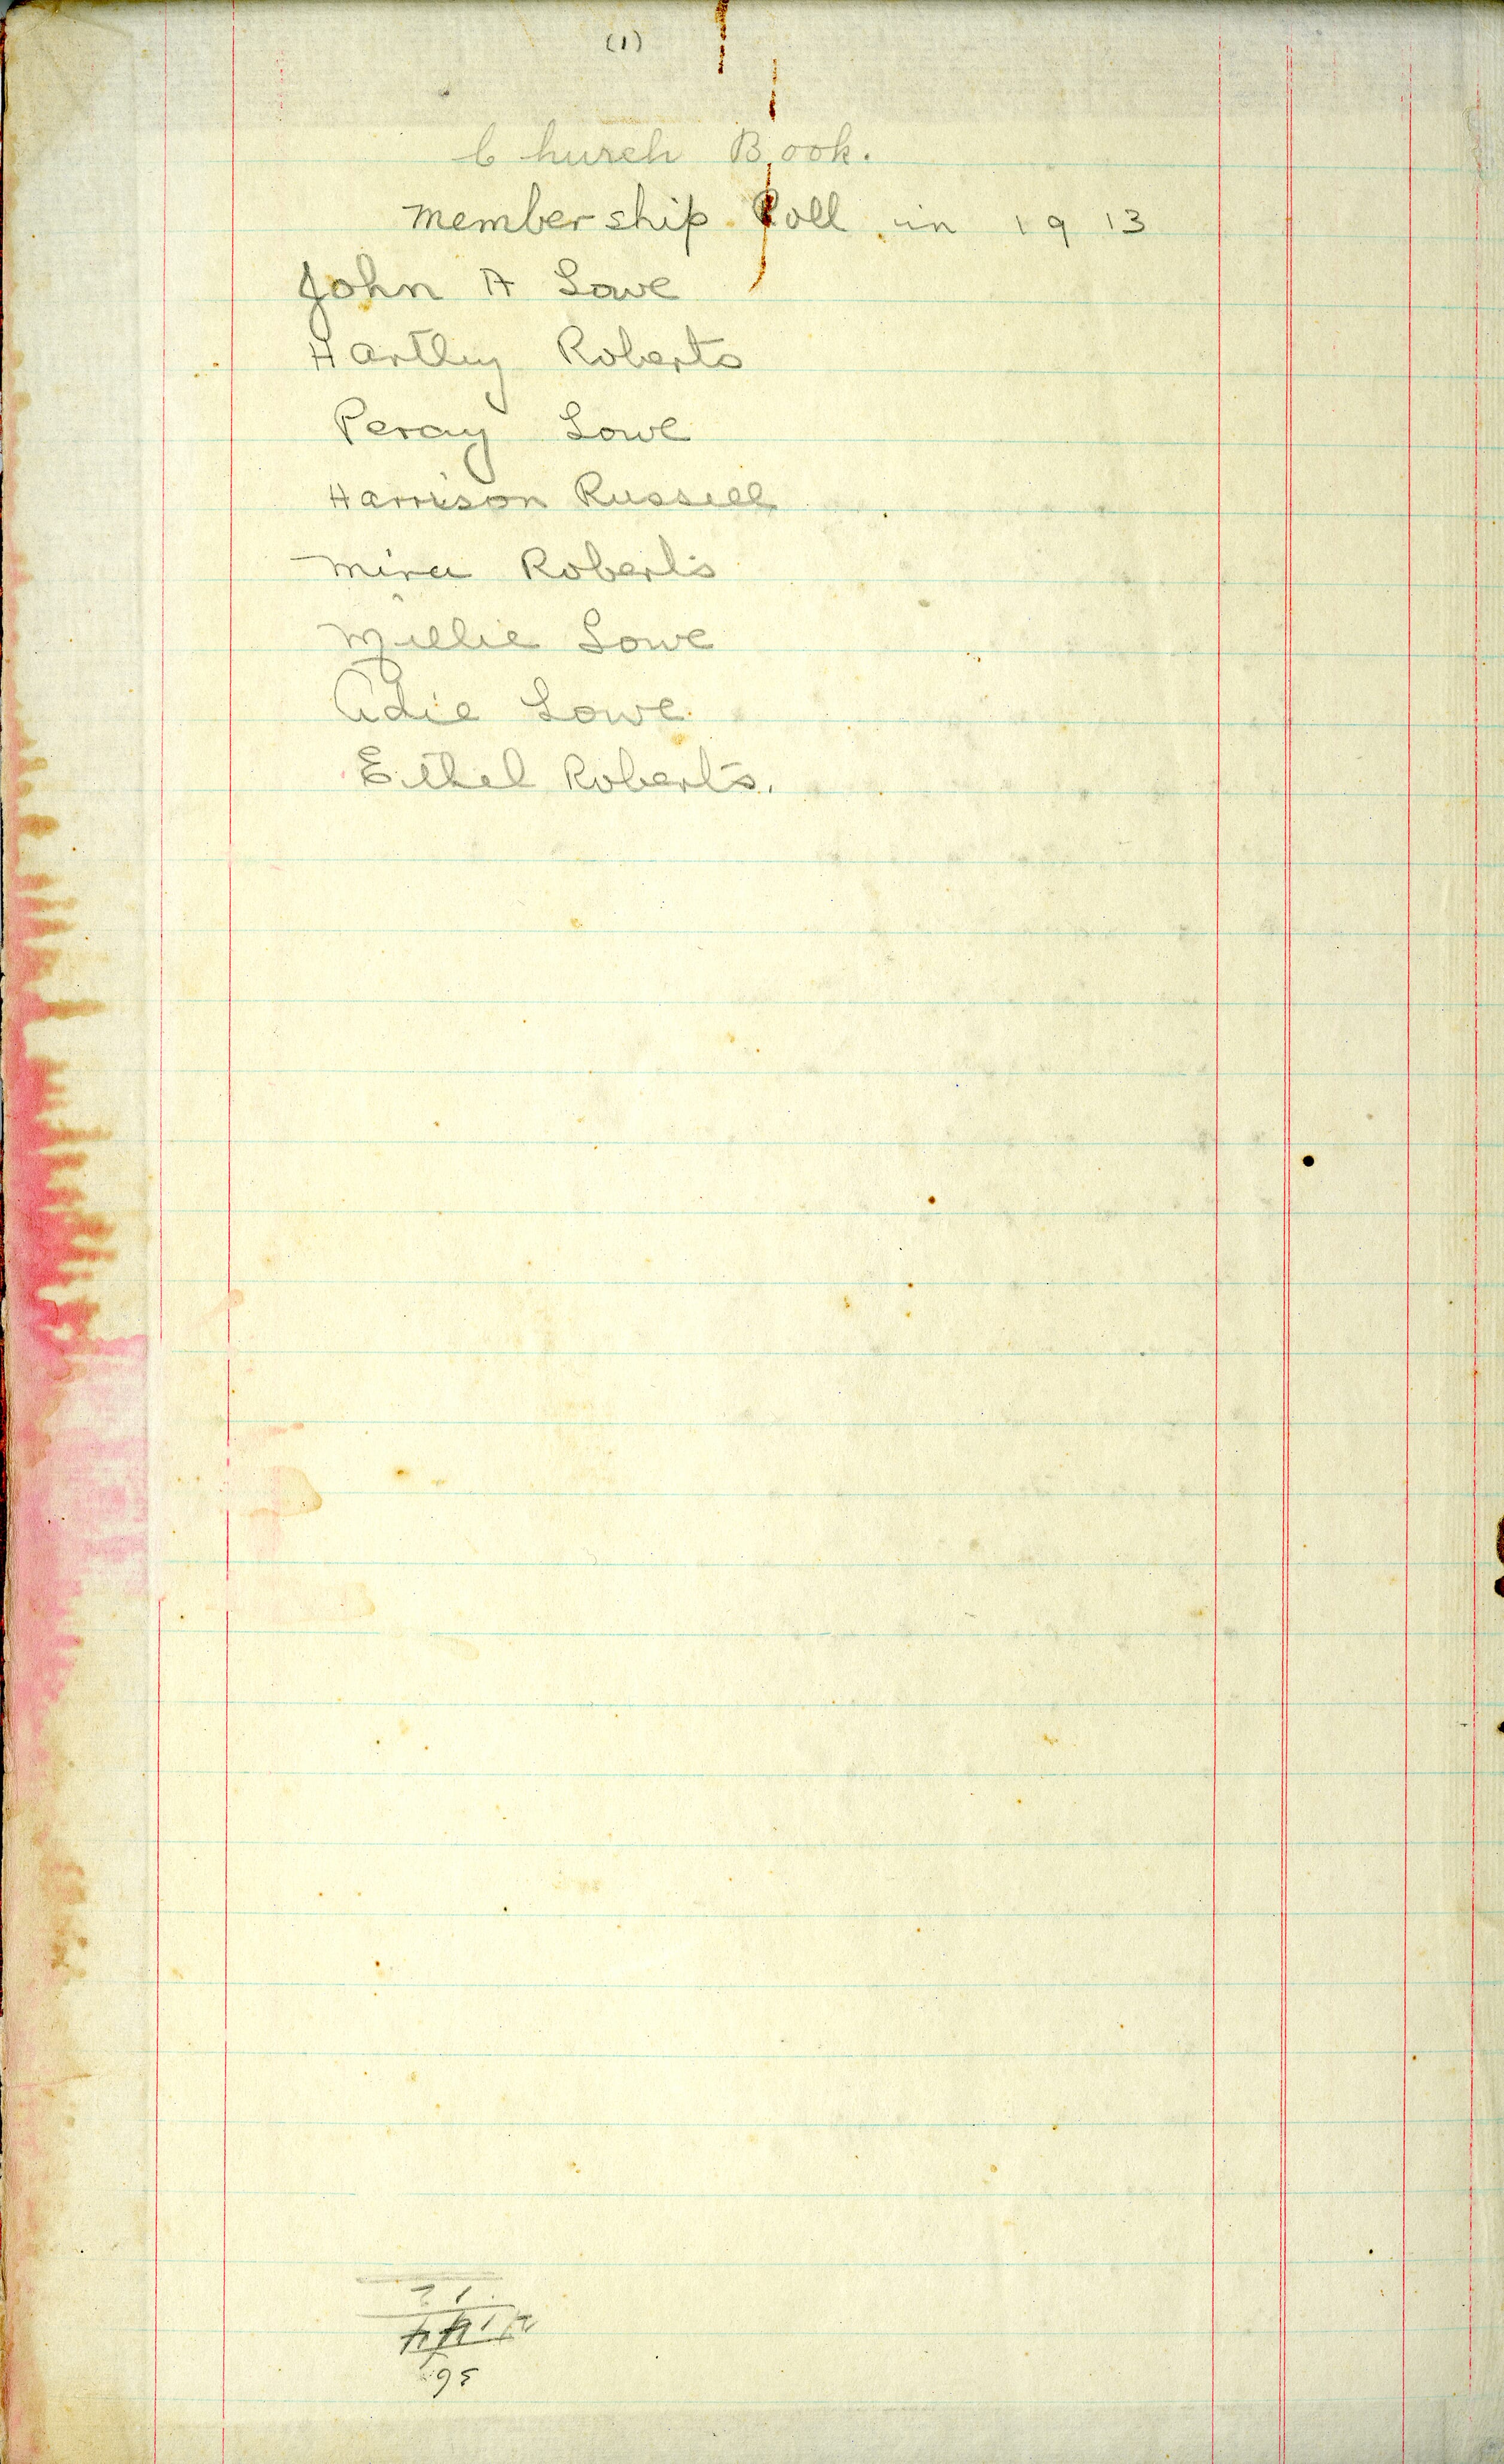 (1)
Church Book.
Membership Roll in 1913
John A Lowe
Hartley Roberts
Percy Lowe
Harrison Russell
Mina Roberts
Millie Lowe
Adie Lowe
Ethel Roberts.
95